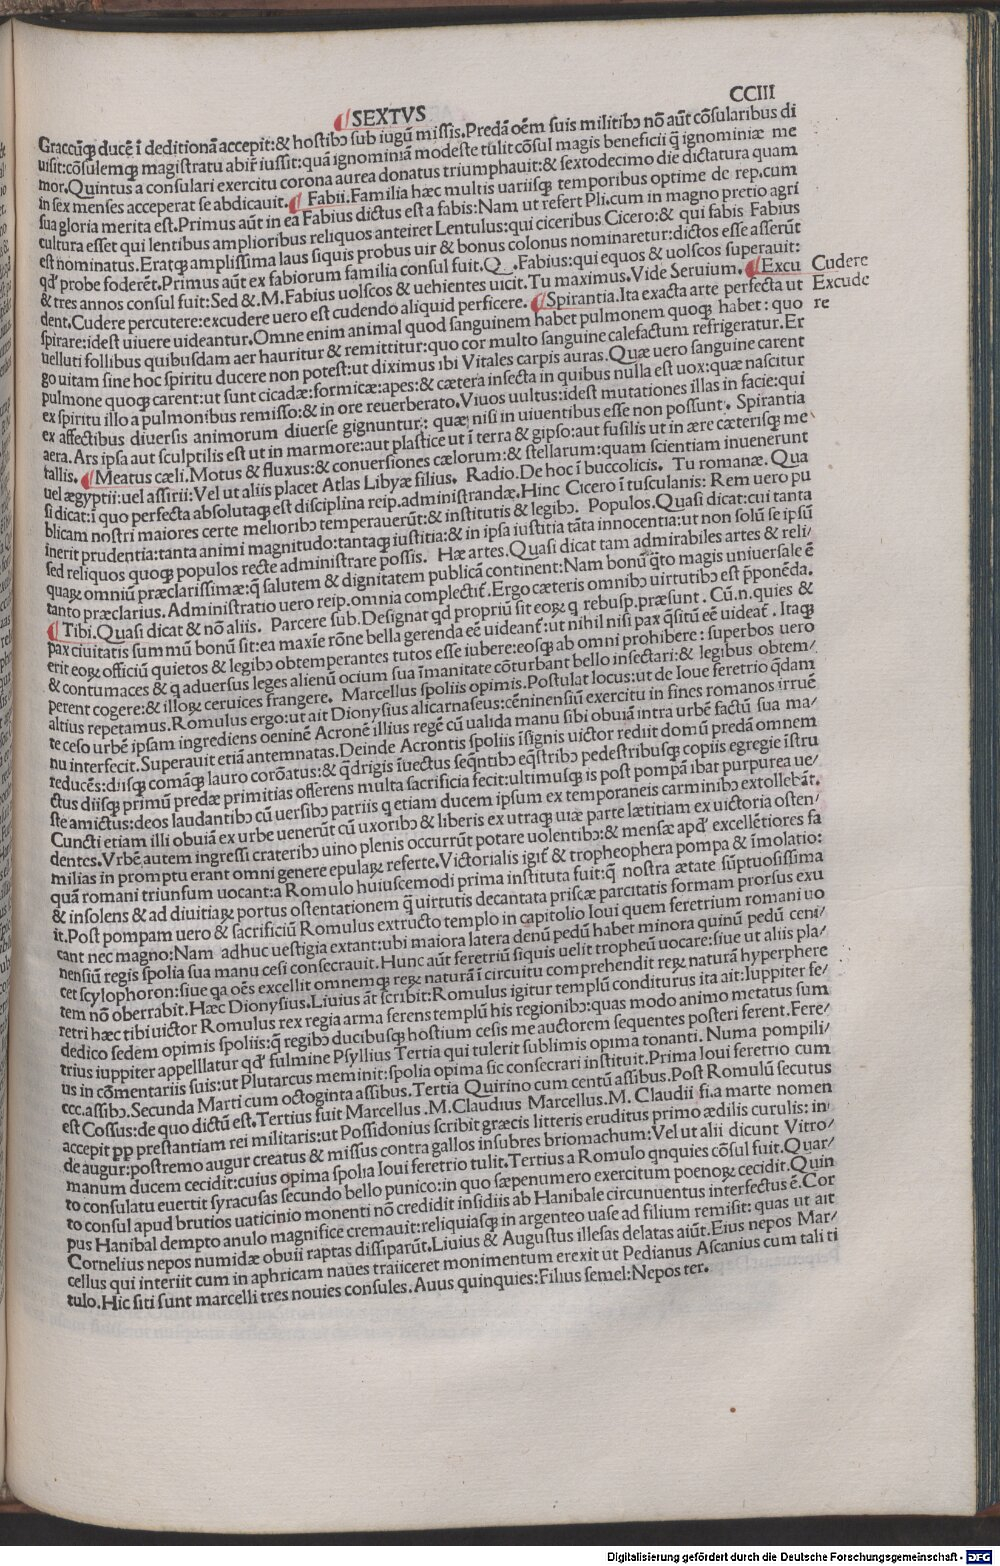 CCIII
SEXTVS
Graccũqʒ ducẽ ĩ deditionã accepit:& hostibɔ sub iugũ missis.Predã oẽm suis militibɔ nõ aũt cõsularibus di
uisit:cõsulemqʒ magistratu abiř iussit:quã ignominiã modeste tulit cõsul magis beneficii q̃ ignominiæ me
mor.Quintus a consulari exercitu corona aurea donatus triumphauit:& sextodecimo die dictatura quam
in sex menses acceperat se abdicauit. Fabii.Familia hæc multis uariisqʒ temporibus optime de rep.cum
sua gloria merita est.Primus aũt in eã Fabius dictus est a fabis:Nam ut refert Pli.cum in magno pretio agri
cultura esset qui lentibus amplioribus reliquos anteiret Lentulus:qui ciceribus Cicero:& qui fabis Fabius
est nominatus.Eratqʒ amplissima laus siquis probus uir & bonus colonus nominaretur:dictos esse asserũt
qď probe foderẽt.Primus aũt ex fabiorum familia consul fuit.Q .Fabius:qui equos & uolscos superauit:
& tres annos consul fuit:Sed & .M.Fabius uolscos & uehientes uicit.Tu maximus.Vide Seruium. Excu
dent.Cudere percutere:excudere uero est cudendo aliquid perficere. Spirantia.Ita exacta arte perfecta ut
Cudere
Excude
re
spirare:idest uiuere uideantur.Omne enim animal quod sanguinem habet pulmonem quoqʒ habet: quo
uelluti follibus quibusdam aer hauritur & remittitur:quo cor multo sanguine calefactum refrigeratur.Er
go uitam sine hoc spiritu ducere non potest:ut diximus ibi Vitales carpis auras.Quæ uero sanguine carent
pulmone quoqʒ carent:ut sunt cicadæ:formicæ:apes:& cætera insecta in quibus nulla est uox:quæ nascitur
ex spiritu illo a pulmonibus remisso:& in ore reuerberato.Viuos uultus:idest mutationes illas in facie:qui
ex affectibus diuersis animorum diuerse gignuntur: quæ nisi in uiuentibus esse non possunt. Spirantia
aera.Ars ipsa aut sculptilis est ut in marmore:aut plastice ut ĩ terra & gipso:aut fusilis ut in ære cæterisqʒ me
tallis. Meatus cæli.Motus & fluxus:& conuersiones cælorum:& stellarum:quam scientiam inuenerunt
uel ægyptii:uel assirii:Vel ut aliis placet Atlas Libyæ filius. Radio.De hoc ĩ buccolicis. Tu romanæ. Qua
si dicat:ĩ quo perfecta absolutaqʒ est disciplina reip.administrandæ.Hinc Cicero ĩ tusculanis: Rem uero pu
blicam nostri maiores certe melioribɔ temperauerũt:& institutis & legibɔ. Populos.Quasi dicat:cui tanta
inerit prudentia:tanta animi magnitudo:tantaqʒ iustitia:& in ipsa iustitia tãta innocentia:ut non solũ se ipsũ
sed reliquos quoqʒ populos recte administrare possis. Hæ artes.Quasi dicat tam admirabiles artes & reli/
quaꝝ omniũ præclarissimæ:q̃ salutem & dignitatem publicã continent:Nam bonũ q̃to magis uniuersale ẽ
tanto præclarius.Administratio uero reip.omnia complectit̃.Ergo cæteris omnibɔ uirtutibɔ est p̃ponẽda.
Tibi.Quasi dicat & nõ aliis. Parcere sub.Designat qď propriũ sit eoꝝ q rebusp.præsunt. Cũ.n.quies &
pax ciuitatis summũ bonũ sit:ea maxĩe rõne bella gerenda eẽ uideanť:ut nihil nisi pax q̃sitũ eẽ uideať. Itaqʒ
erit eoꝝ officiũ quietos & legibɔ obtemperantes tutos esse iubere:eosqʒ ab omni prohibere: superbos uero
& contumaces & q aduersus leges alienũ ocium sua ĩmanitate cõturbant bello insectari:& legibus obtem/
perent cogere:& illoꝝ ceruices frangere. Marcellus spoliis opimis.Postulat locus:ut de Ioue feretrio q̃dam
altius repetamus.Romulus ergo:ut ait Dionysius alicarnaseus:cẽninensiũ exercitu in fines romanos irruẽ
te ceso urbẽ ipsam ingrediens oeninẽ Acronẽ illius regẽ cũ ualida manu sibi obuiã intra urbẽ factũ sua ma/
nu interfecit.Superauit etiã antemnatas.Deinde Acrontis spoliis ĩsignis uictor rediit domũ predã omnem
reducẽs:diisqʒ comãqʒ lauro corõatus:& q̃drigis ĩuectus seq̃ntibɔ eq̃stribɔ pedestribusqʒ copiis egregie ĩstru
ctus diisqʒ primũ predæ primitias offerens multa sacrificia fecit:ultimusqʒ is post pompã ibat purpurea ue/
ste amictus:deos laudantibɔ cũ uersibɔ patriis q etiam ducem ipsum ex temporaneis carminibɔ extollebãt.
Cuncti etiam illi obuiã ex urbe uenerũt cũ uxoribɔ & liberis ex utraqʒ uiæ parte lætitiam ex uictoria osten/
dentes.Vrbẽ autem ingressi crateribɔ uino plenis occurrũt potare uolentibɔ:& mensæ apď excellẽtiores fa
milias in promptu erant omni genere epulaꝝ referte.Victorialis igiť & tropheophera pompa & ĩmolatio:
quã romani triunfum uocant:a Romulo huiuscemodi prima instituta fuit:q̃ nostra ætate sũptuosissima
& insolens & ad diuitiaꝝ portus ostentationem q̃ uirtutis decantata priscæ parcitatis formam prorsus exu
it.Post pompam uero & sacrificiũ Romulus extructo templo in capitolio Ioui quem feretrium romani uo
cant nec magno:Nam adhuc uestigia extant:ubi maiora latera denũ pedũ habet minora quinũ pedũ ceni/
nensiũ regis spolia sua manu cesi consecrauit.Hunc aũt feretriũ siquis uelit tropheũ uocare:siue ut aliis pla/
cet scylophoron:siue qa oẽs excellit omnemqʒ reꝝ naturã ĩ circuitu comprehendit reꝝ naturã hyperphere
tem nõ oberrabit.Hæc Dionysius.Liuius ãt scribit:Romulus igitur templũ conditurus ita ait:Iuppiter fe/
retri hæc tibi uictor Romulus rex regia arma ferens templũ his regionibɔ:quas modo animo metatus sum
dedico sedem opimis spoliis:q̃ regibɔ ducibusqʒ hostium cesis me auctorem sequentes posteri ferent.Fere/
trius iuppiter appelllatur qď fulmine Psyllius Tertia qui tulerit sublimis opima tonanti. Numa pompili/
us in cõmentariis suis:ut Plutarcus meminit:spolia opima sic consecrari instituit.Prima Ioui feretrio cum
ccc.assibɔ.Secunda Marti cum octoginta assibus.Tertia Quirino cum centũ assibus.Post Romulũ secutus
est Cossus:de quo dictũ est.Tertius fuit Marcellus .M.Claudius Marcellus.M.Claudii fi.a marte nomen
accepit ꝑꝑ prestantiam rei militaris:ut Possidonius scribit græcis litteris eruditus primo ædilis curulis: in/
de augur:postremo augur creatus & missus contra gallos insubres briomachum:Vel ut alii dicunt Vitro/
manum ducem cecidit:cuius opima spolia Ioui feretrio tulit.Tertius a Romulo qnquies cõsul fuit.Quar/
to consulatu euertit syracusas secundo bello punico:in quo sæpenumero exercitum poenoꝝ cecidit.Quin
to consul apud brutios uaticinio monenti nõ credidit insidiis ab Hanibale circunuentus interfectus ẽ.Cor
pus Hanibal dempto anulo magnifice cremauit:reliquiasqʒ in argenteo uase ad filium remisit: quas ut ait
Cornelius nepos numidæ obuii raptas dissiparũt.Liuius & Augustus illesas delatas aiũt.Eius nepos Mar/
cellus qui interiit cum in aphricam naues traiiceret monimentum erexit ut Pedianus Ascanius cum tali ti
tulo.Hic siti sunt marcelli tres nouies consules.Auus quinquies:Filius semel:Nepos ter.
Digitalisierung gefördert durch die Deutsche Forschungsgemeinschaft - DFG